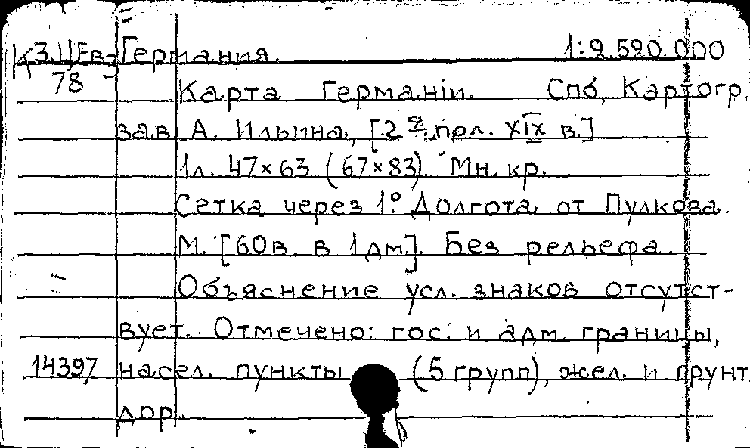 К 3.Ц.Ев 3 Германия. 1:2.520.000
78 Карта Германіи. Спб, Картогр.
зав. А. Ильина, [2ая пол. XIX в.]
1л. 47×63 (67×83). Мн. кр.
Сетка через 1°. Долгота от Пулкова.
М. [60в. в 1дм]. Без рельефа.
Объяснение усл. знаков отсутст-
вует. Отмечено: гос. и адм. границы,
14397 насел. пункты (5 групп), жел. и грунт.
дор.